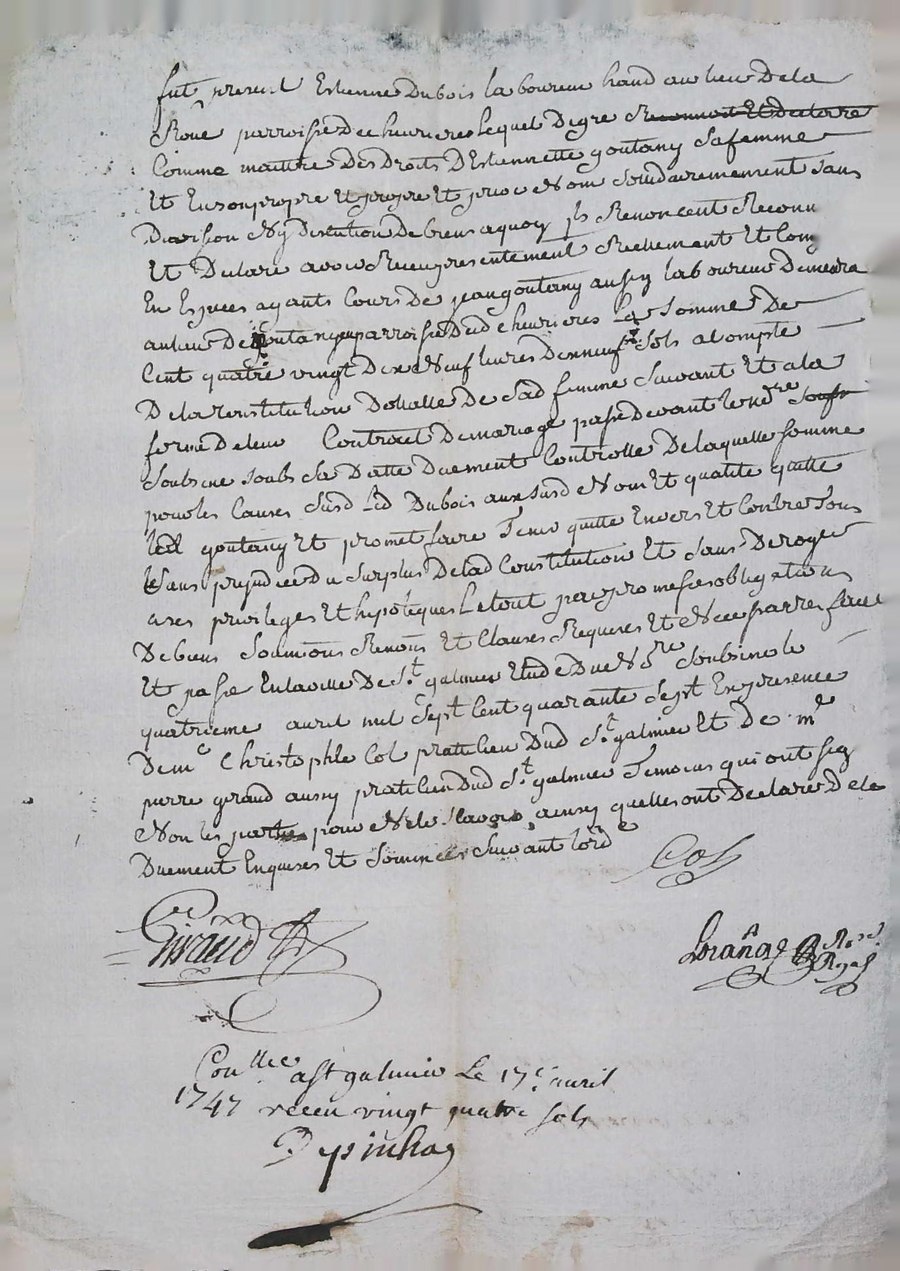 fut present Estienne Dubois laboureur hand au lieu De la
Roüe parroisse De cheurieres Lequel De gre Reconnoit Et Declare
Comme maitre Des Droits D'Estiennette goutany Sa femme
Et En son propre Et propre Et prive Nom Solidairemement Sans
Division Ny Discution De biens a quoy ils Renoncent Reconu
Et Declare avoir Receu presentement Reellement Et Comp
En Especes ayants Cours De jean goutany aussy laboureur Demeura
au lieu De parroisse Dud cheurieres La Somme De
Cent quatre vingt Dix Neuf liures Dixneuf Sols a Compte
De la Constitution Dotalle De Sad femme Suivant Et a la
forme De leur Contract De mariage passé Devant le No.re Soubs
Soubsne soubs Sa Datte Duement Controlle De laquelle Somme
pour les Causes Susd Led Dubois aux Susd Nom Et qualité quitte
led goutany Et promet faire Tenir quitte Envers Et Contre Tous
Sans prejudice Du Surplus De lad Constitution Et Sans Deroger
a ses privileges Et hipoteques Le tout par promesses obligations
De biens Soumions Renons Et Clauses Requises Et Necessaires fait
Et passé En la ville De S.t galmier Etude Du No.re Soubsine le
quatrieme avril mil Sept Cent quarante Sept En presence
De m.e Christophle Col pratitien Dud S.t galmier Et De m.e
pierre giraud aussy pratitien Dud S.t galmier Temoins qui ont sig
Non les parties pour Ne le Scavoir ainsy quelles ont Declaré De ce
Duement Enquises Et Sommées Suivant lord.e
Col
Giraud
No.re
Royal
Con.llée a St galmier Le 17.e avril
1747 receu vingt quatre sols